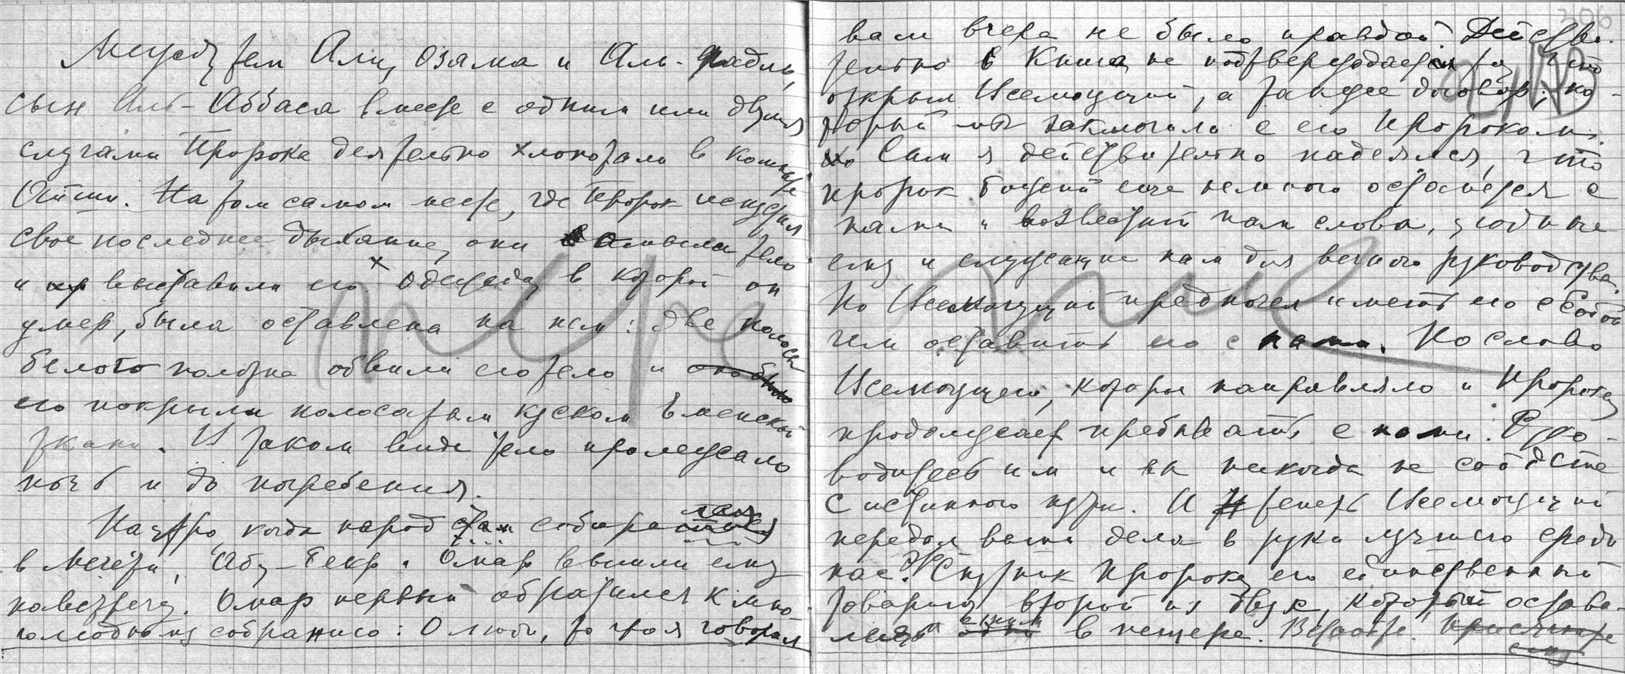 Между тем Али, Озама и Аль-Фадль,
сын Аль-Аббаса вместе с одним или двумя
слугами Пророка деятельно хлопотали в комнате
Айши. На том самом месте, где Пророк испустил
свое последнее дыхание, они омыли тело
и выставили его. Одежда, в которой он
умер, была оставлена на нем: две полосы
белого полотна обвили его тело и
его покрыли полосатым куском Еменской
ткани. В таком виде тело пролежало
ночь и до погребения.
На утро, когда народ стал собираться
в мечети, Абу-Бекр и Омар вышли ему
навстречу. Омар первый обратился к мно-
голюдному собранию: О люди, то что я говорил
вам вчера не было правдой. Действи-
тельно в Книге не подтверждается то что
открыл Всемогущий, а также договор, ко-
торый мы заключили с его Пророком.
Сам я действительно надеялся, что
пророк Божий еще немного останется с
нами и возвестит нам слова, угодные
ему и служащие нам для вечного руководства.
Но Всемогущий предпочел иметь его с собой
чем оставить его с нами. Но слово
Всемогущего, которое направляло и Пророка,
продолжает пребывать с нами. Руко-
водитесь им и вы никогда не сойдете
с истинного пути. И теперь Всемогущий
передал ваши дела в руки лучшего среди
нас. Это Спутник Пророка, его единственный
товарищ, второй из двух, который остава-
лся с ним в пещере. Встаньте. Присягните
ему.